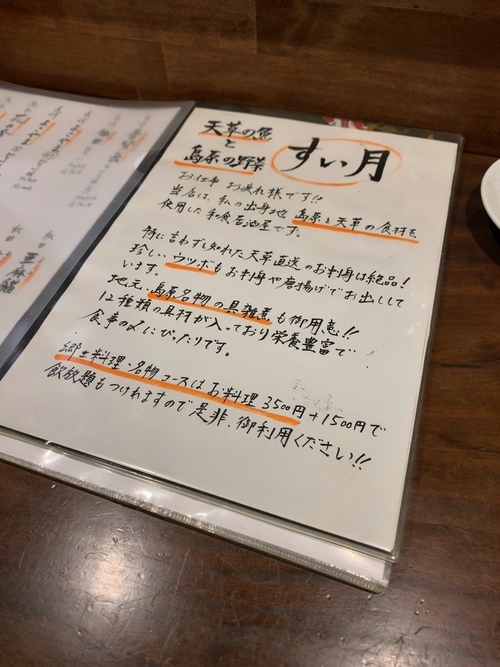 天草の魚
と
島原の野菜
すい月
お仕事 お疲れ様です!!
当店は、私の出身地 島原と天草の食材を
使用した和食居酒屋です。
特に言わずと知れた天草直送のお刺身は絶品!
珍しいウツボもお刺身や唐揚げでお出しして
います。
地元、島原名物の具雑煮も御用意!!
12種類の具材が入っており栄養豊富で
食事の〆にぴったりです。
郷土料理・名物コースはお料理3500円+1500円で
飲放題もつけれますので是非、御利用ください!!